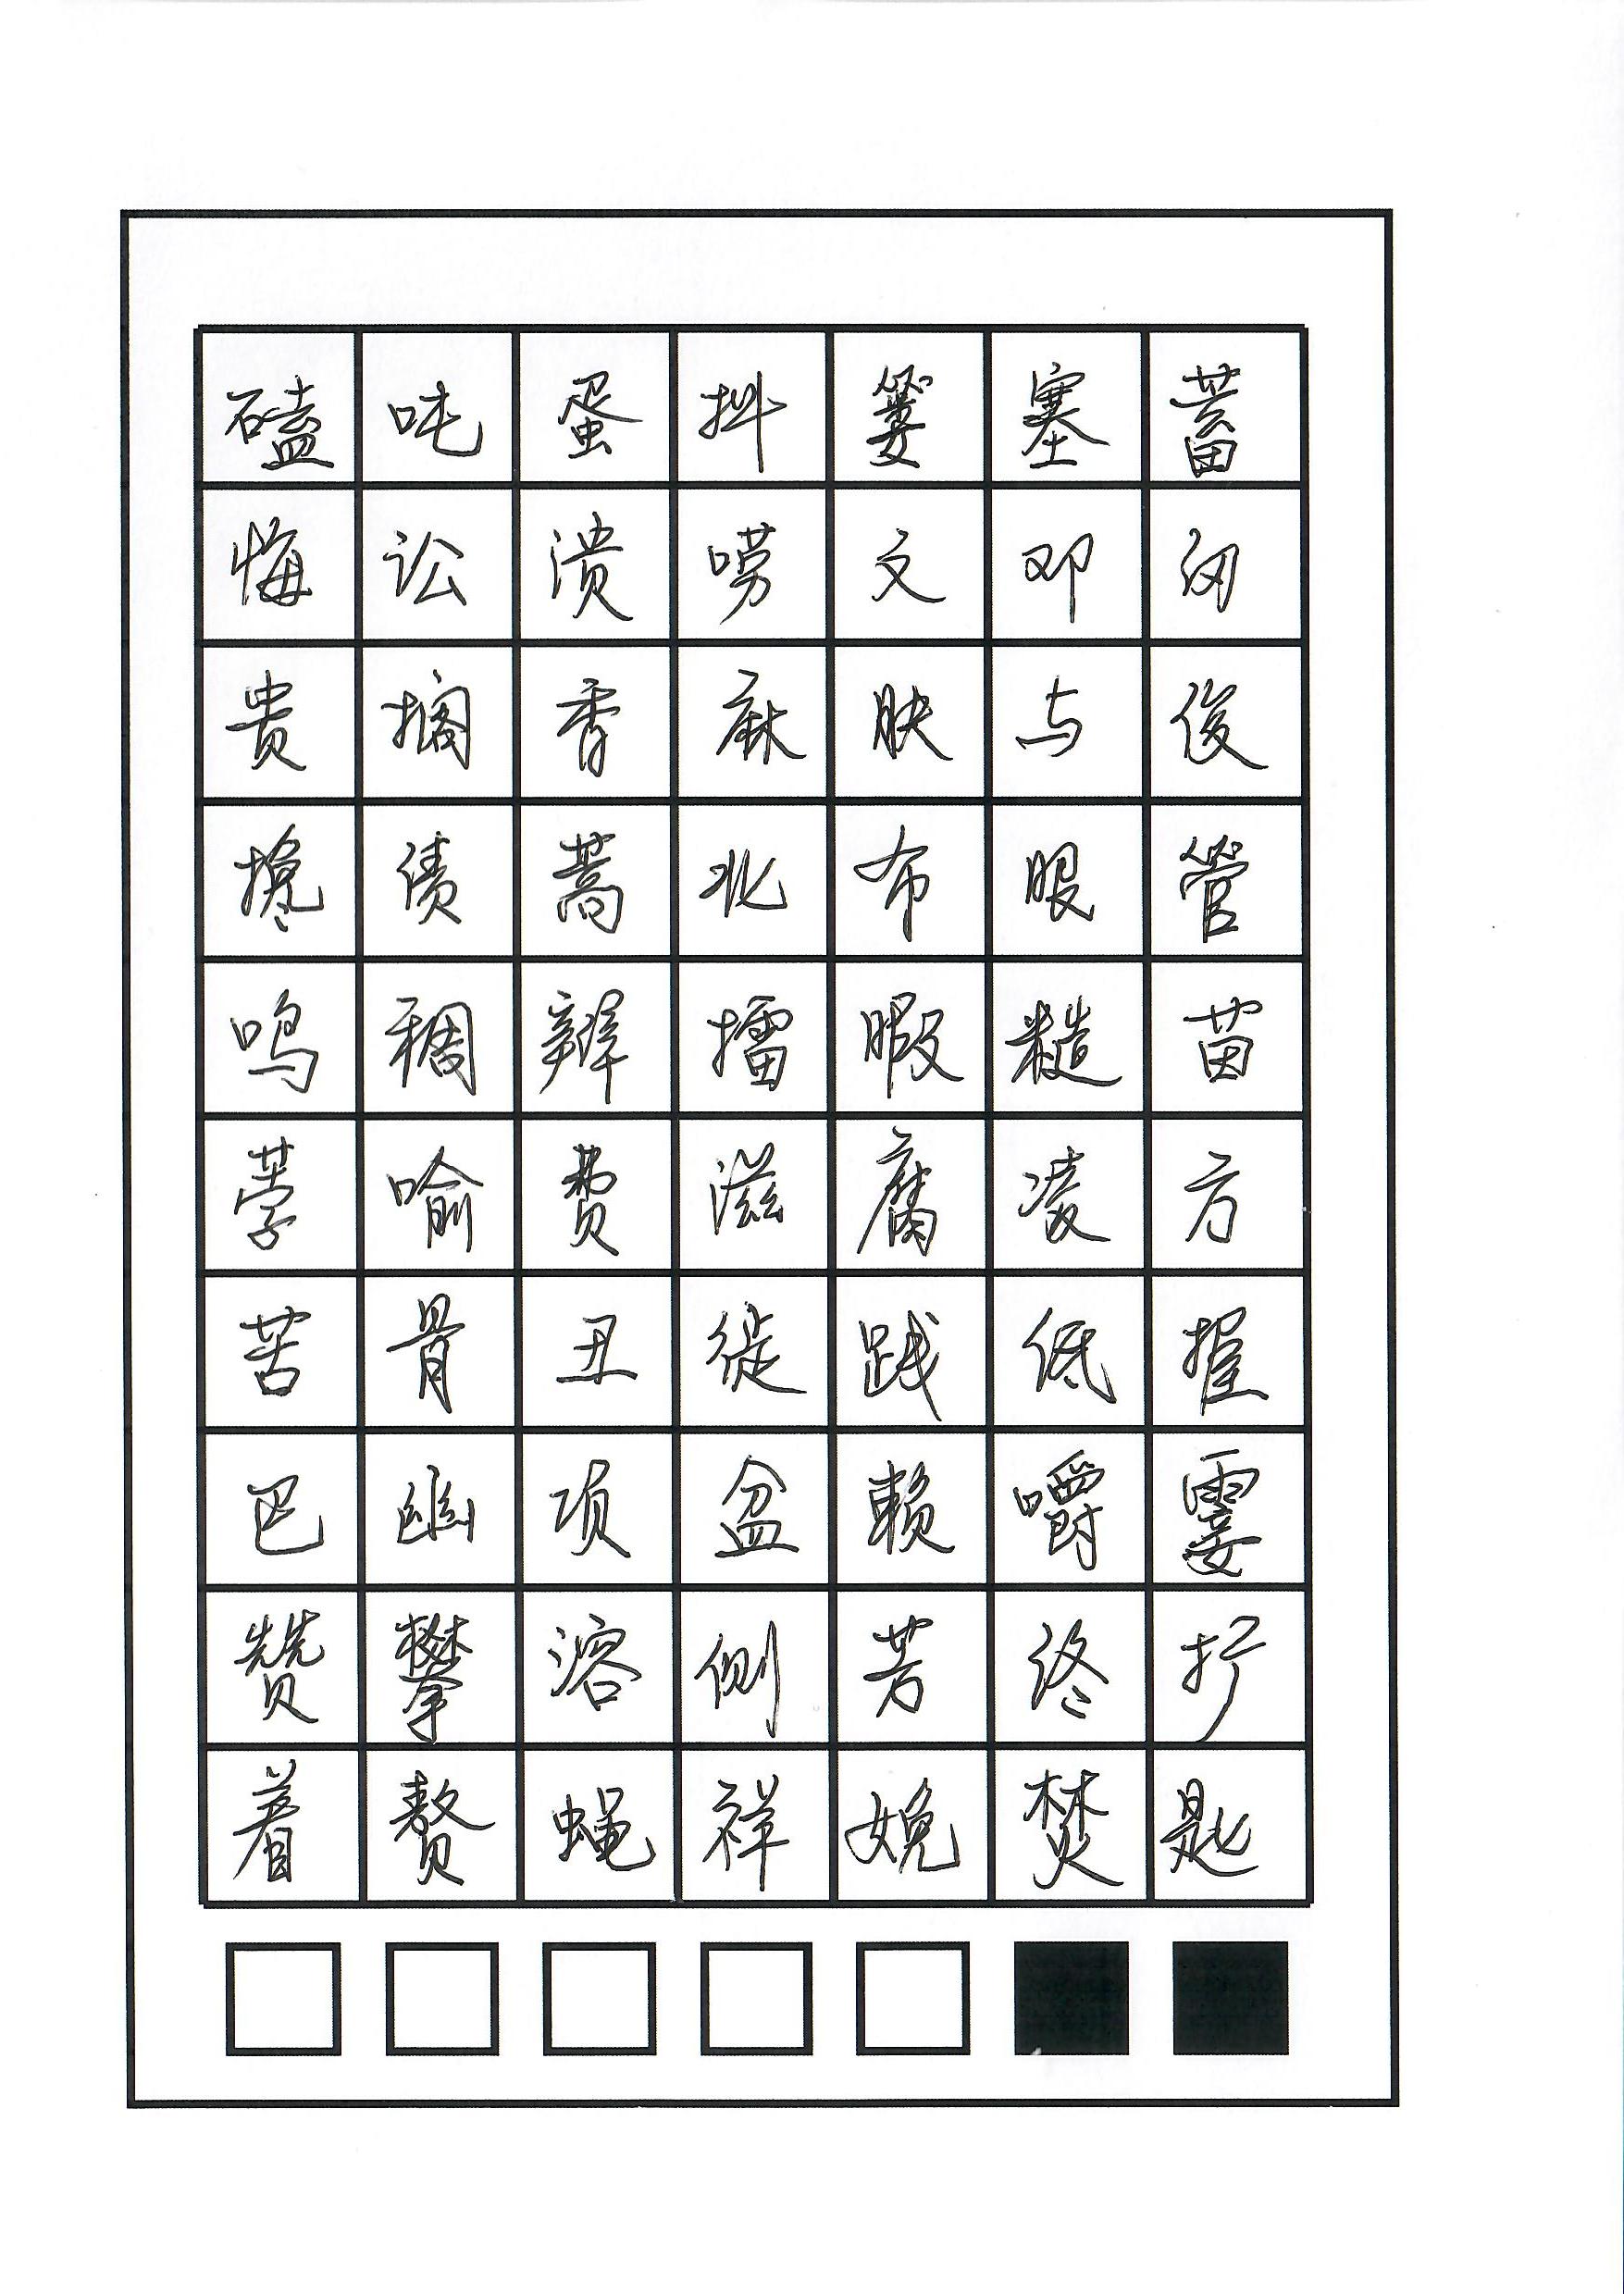 磕吨蛋抖篓塞蓄
悔讼溃唠文邓汐
贵搁香麻肤与俊
搀债蒿北布眼管
鸣稠辫擂暇糙苗
荸喻费滋腐凌方
苦骨丑徒践低握
巴幽项盆赖嚼霎
赞攀溶侧芳终扩
着赘蝇祥娩焚匙